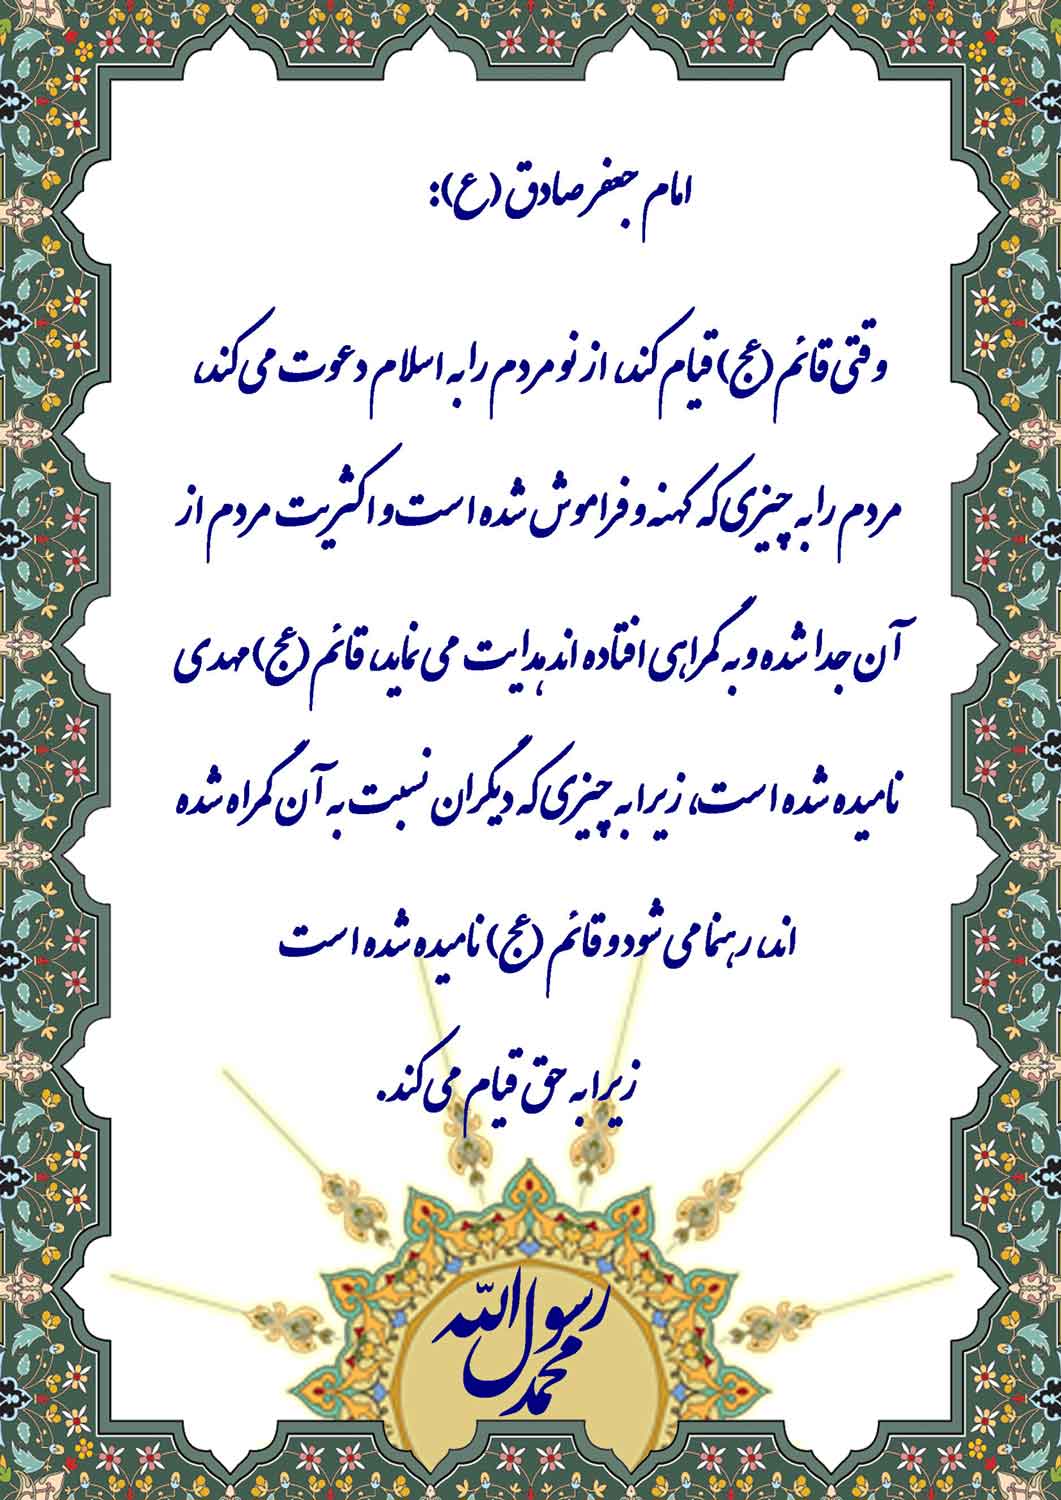 امام جعفر صادق (ع):
وقتی قائم (عج) قیام کند، از نو مردم را به اسلام دعوت می کند،
مردم را به چیزی که کهنه و فراموش شده است و اکثریت مردم از
آن جدا شده و به گمراهی افتاده اند هدایت می نماید، قائم (عج) مهدی
نامیده شده است، زیرا به چیزی که دیگران نسبت به آن گمراه شده
اند، رهنما می شود و قائم (عج) نامیده شده است
زیرا به حق قیام می کند.
محمد رسول الله